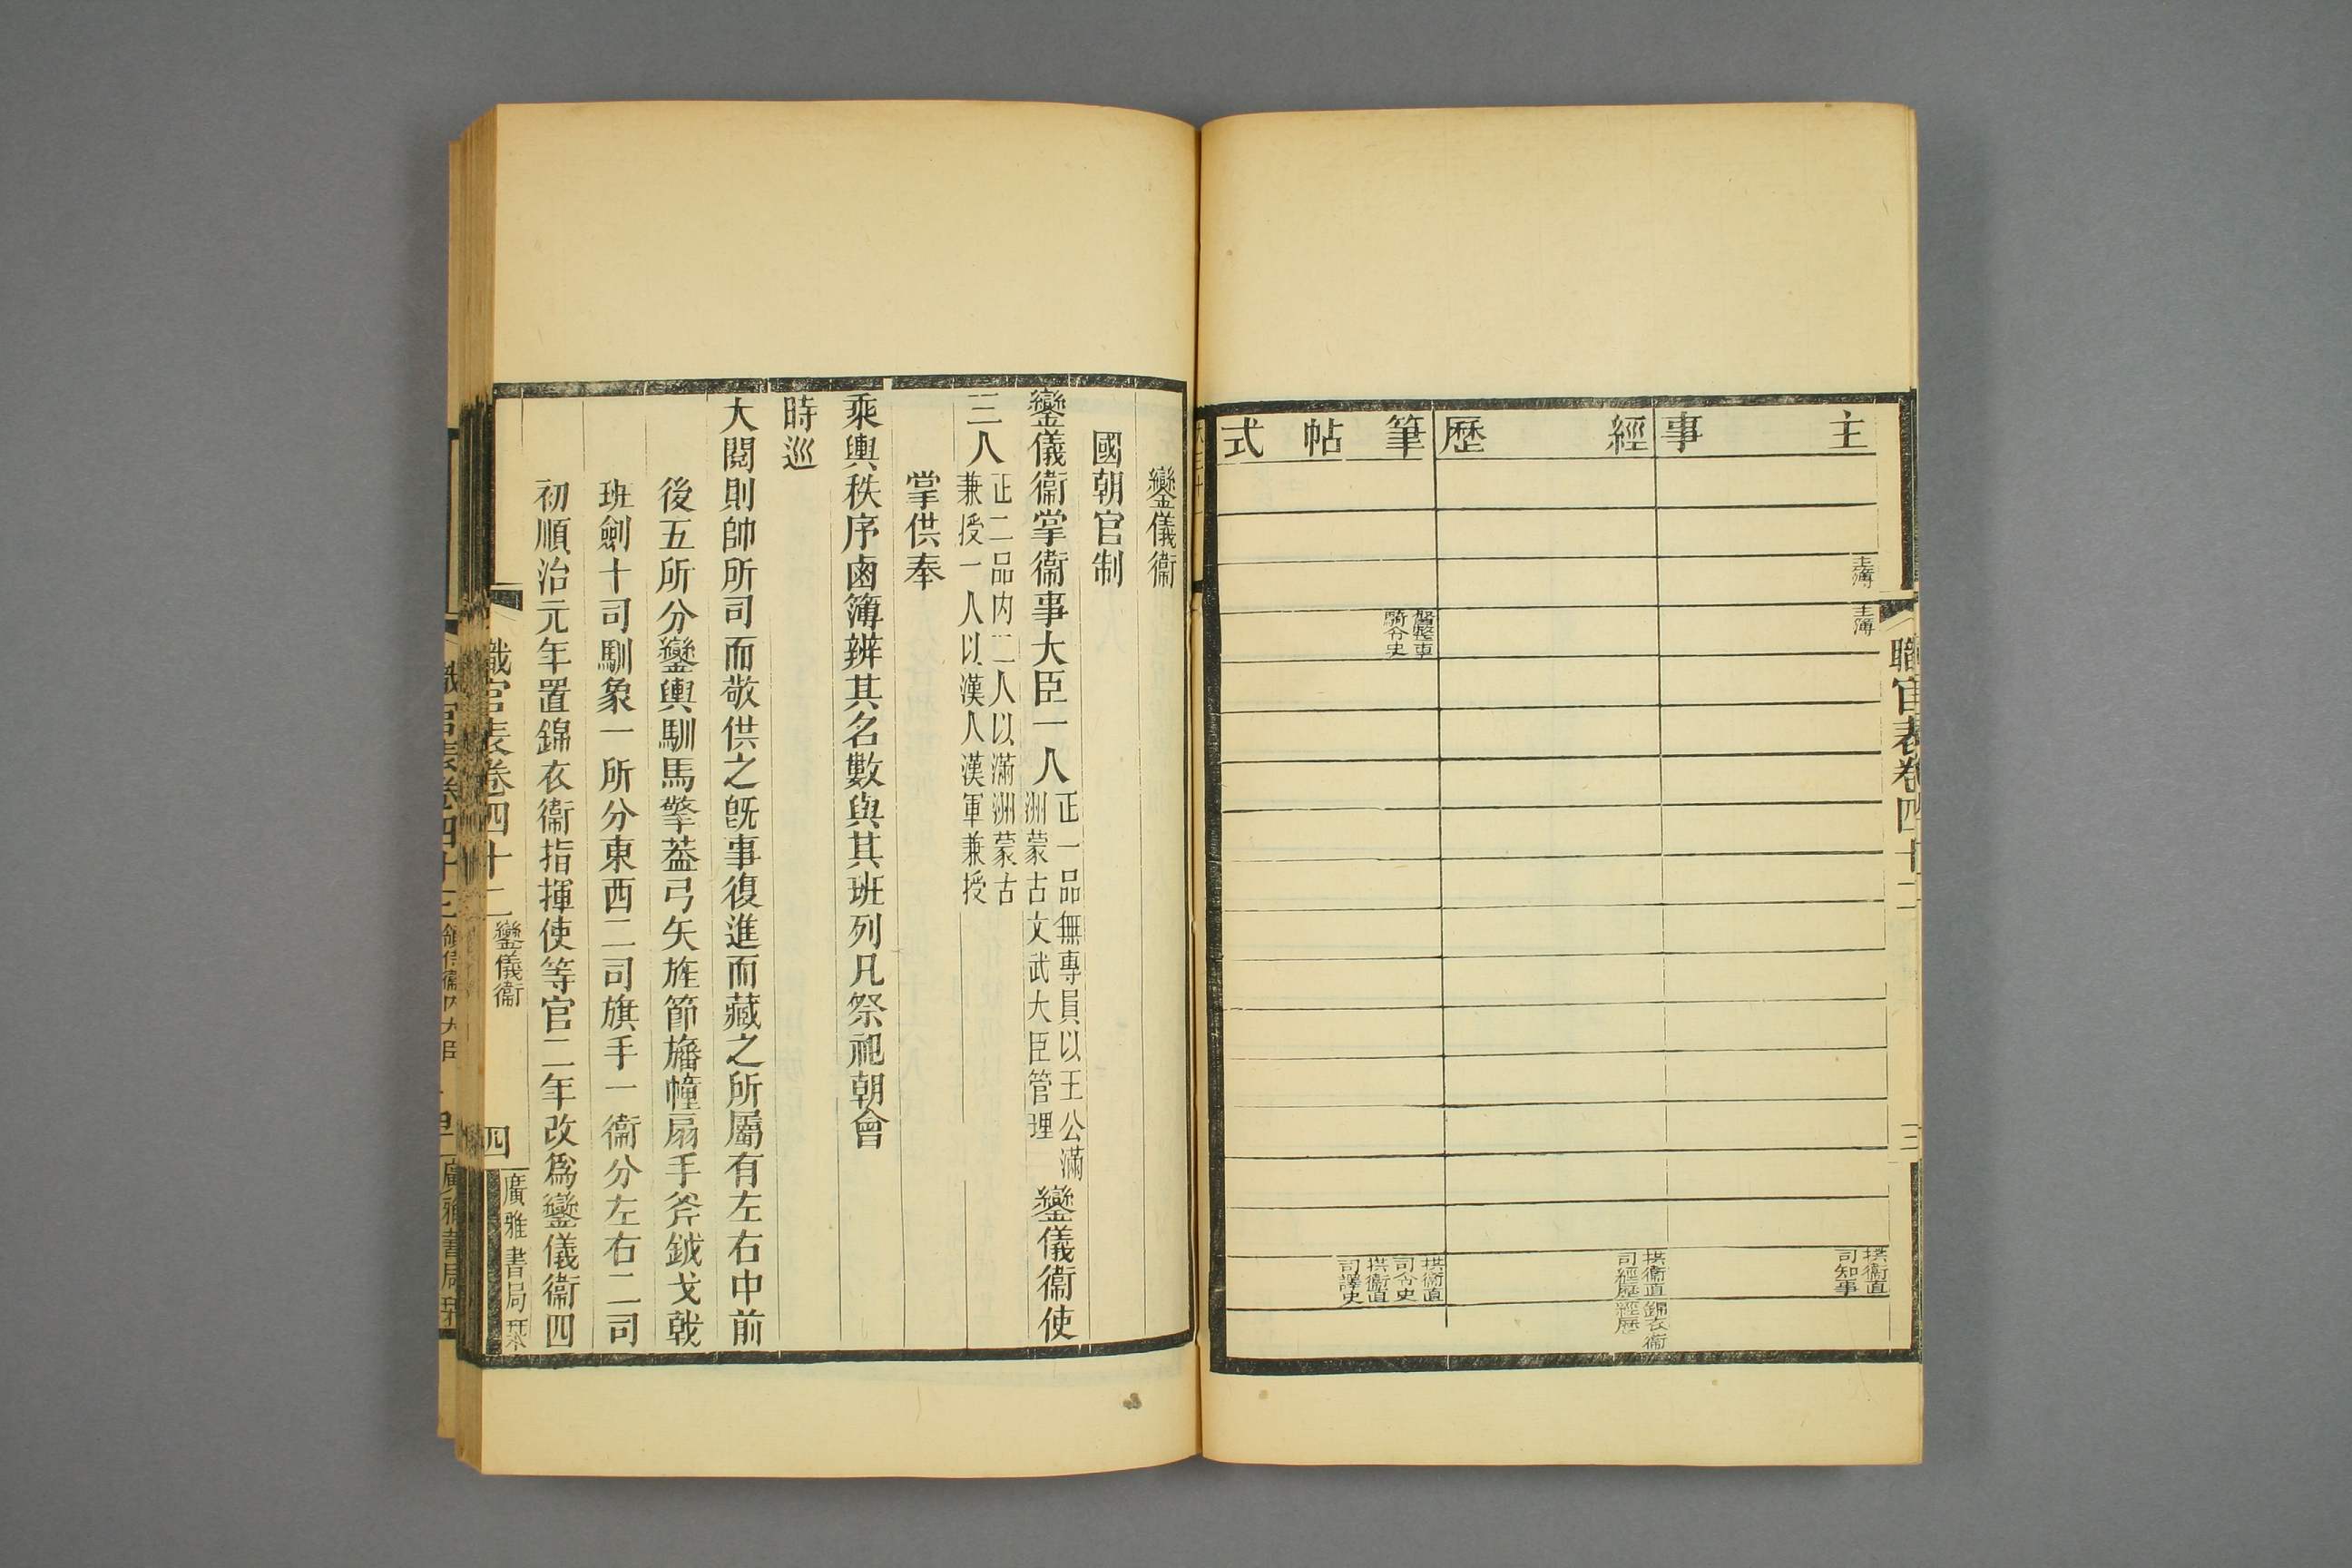 主事
經歷
筆帖式
主簿
主簿
騎令史
拱衞直
司知事
拱衞直
司經歷
錦衣衞
經歷
拱衞直
司令史
拱衞直
司譯史
職官表卷四十二
三
鑾儀衞
國朝官制
鑾儀衞掌衞事大臣一人正一品無專員以王公滿
洲蒙古文武大臣管理鑾儀衞使
三人正二品内二人以滿洲蒙古
兼授一人以漢人漢軍兼授
掌供奉
乘輿秩序鹵簿辨其名數與其班列凡祭祀朝會
時巡
大閱則帥所司而敬供之旣事復進而藏之所屬有左右中前
後五所分鑾輿馴馬擎葢弓矢旌節旛幢扇手斧鉞戈戟
班劍十司馴象一所分東西二司旗手一衞分左右二司
初順治元年置錦衣衞指揮使等官二年改爲鑾儀衞四
職官表卷四十二
鑾儀衞
四
廣雅書局栞
廣雅書局栞